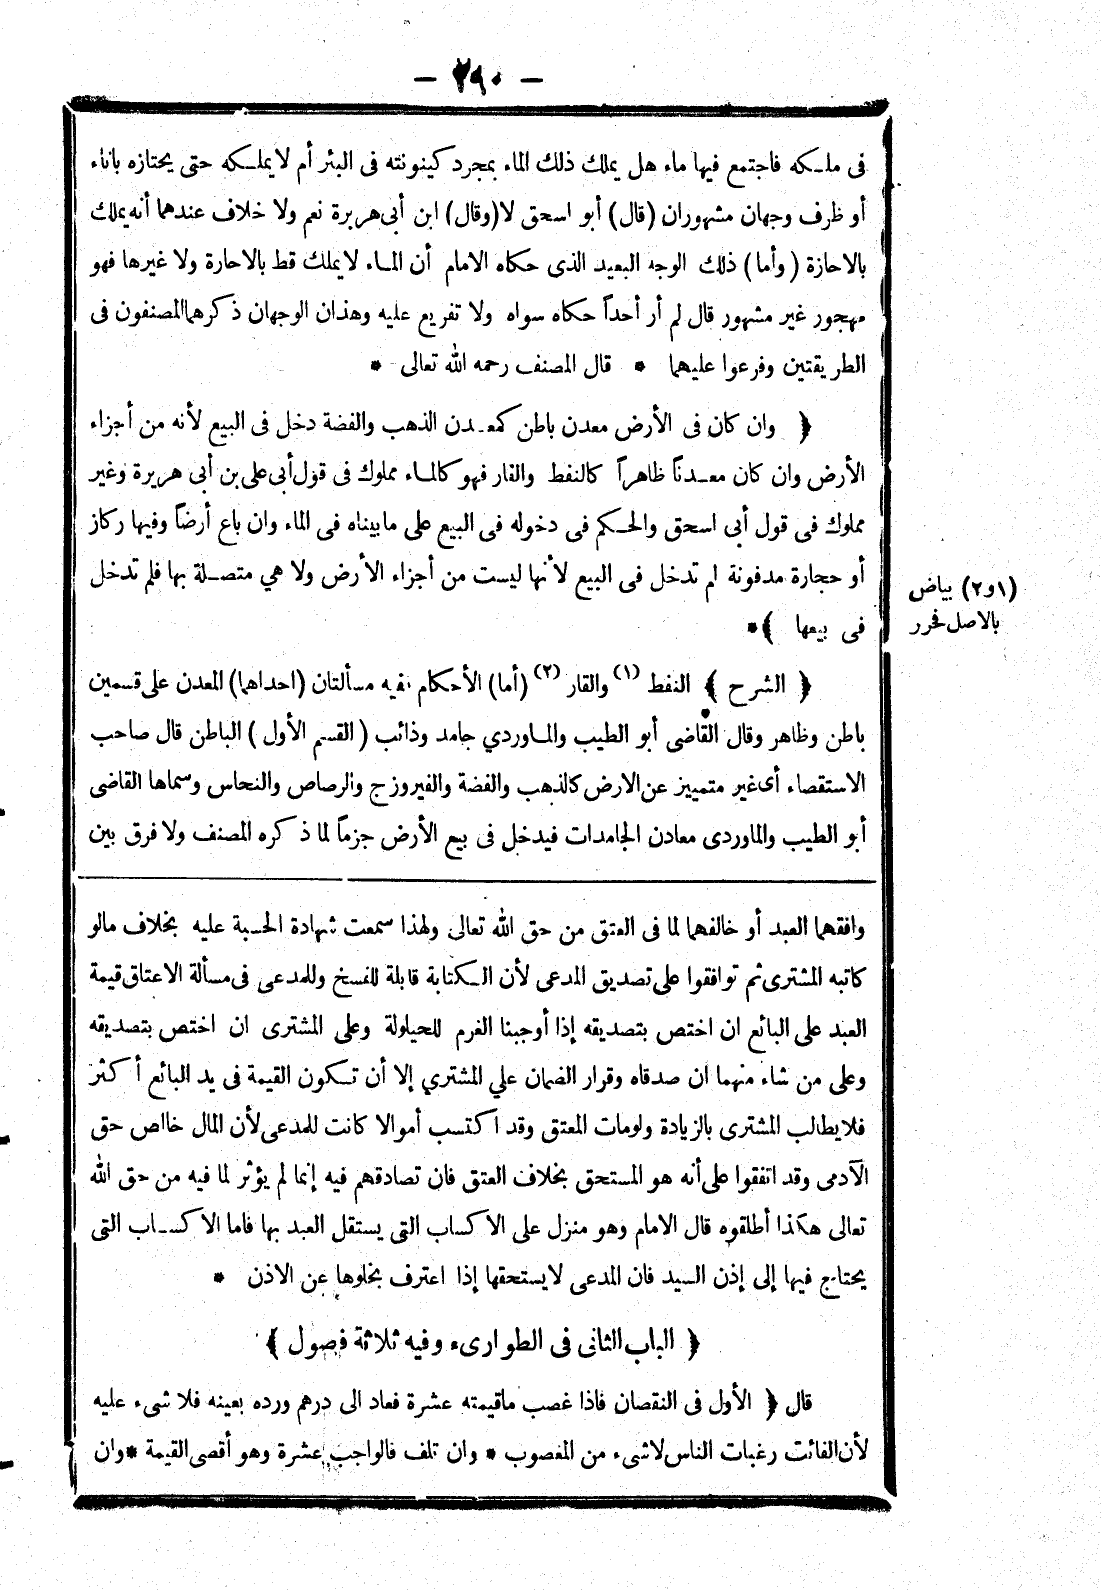 — ٢٩٠ —
فى ملكه فاجتمع فيها ماء هل يملك ذلك الماء بمجرد كينونته فى البئر أم لا يملكه حتى يحتازه باناء
أو ظرف وجهان مشهوران (قال) أبو اسحق لا (وقال) ابن أبى هريرة نعم ولا خلاف عندهما أنه يملك
بالاحازة (وأما) ذلك الوجه البعيد الذى حكاه الامام أن الماء لا يملك قط بالاحازة ولا غيرها فهو
مهجور غير مشهور قال لم أر أحداً حكاه سواه ولا تفريع عليه وهذان الوجهان ذكرهما المصنفون فى
الطريقتين وفرعوا عليهما * قال المصنف رحمه الله تعالى *
﴿ وان كان فى الأرض معدن باطن كمعدن الذهب والفضة دخل فى البيع لأنه من أجزاء
الأرض وان كان معدناً ظاهراً كالنفط والقار فهو كالماء مملوك فى قول أبى على بن أبى هريرة وغير
مملوك فى قول أبى اسحق والحكم فى دخوله فى البيع على مابيناه فى الماء وان باع أرضاً وفيها ركاز
أو حجارة مدفونة لم تدخل فى البيع لأنها ليست من أجزاء الأرض ولا هي متصلة بها فلم تدخل
فى بيعها ﴾ *
(١و٢) بياض
بالاصل فحرر
﴿ الشرح ﴾ النفط (١) والقار (٢) (أما) الأحكام ففيه مسألتان (احداهما) المعدن على قسمين
باطن وظاهر وقال القاضى أبو الطيب والماوردي جامد وذائب (القسم الأول) الباطن قال صاحب
الاستقصاء أى غير متمييز عن الارض كالذهب والفضة والفيروزج والرصاص والنحاس وسماها القاضى
أبو الطيب والماوردى معادن الجامدات فيدخل فى بيع الأرض جزماً لما ذكره المصنف ولا فرق بين
وافقهما العبد أو خالفهما لما فى العتق من حق الله تعالى ولهذا سمعت شهادة الحسبة عليه بخلاف مالو
كاتبه المشترى ثم توافقوا على تصديق المدعى لأن الكتابة قابلة للفسخ وللمدعى فى مسألة الاعتاق قيمة
العبد على البائع ان اختص بتصديقه إذا أوجبنا الغرم للحيلولة وعلى المشترى ان اختص بتصديقه
وعلى من شاء منهما ان صدقاه وقرار الضمان علي المشتري إلا أن تكون القيمة فى يد البائع أكثر
فلا يطالب المشترى بالزيادة ولو مات المعتق وقد اكتسب أموالا كانت للمدعى لأن المال خالص حق
الآدمى وقد اتفقوا على أنه هو المستحق بخلاف العتق فان تصادقهم فيه إنما لم يؤثر لما فيه من حق الله
تعالى هكذا أطلقوه قال الامام وهو منزل على الاكساب التى يستقل العبد بها فاما الاكساب التى
يحتاج فيها إلى إذن السيد فان المدعى لا يستحقها إذا اعترف بخلوها عن الاذن *
﴿ الباب الثانى فى الطوارىء وفيه ثلاثة فصول ﴾
قال ﴿ الأول فى النقصان فاذا غصب ماقيمته عشرة فعاد الى درهم ورده بعينه فلا شىء عليه
لأن الفائت رغبات الناس لاشىء من المغصوب * وان تلف فالواجب عشرة وهو أقصى القيمة * وان